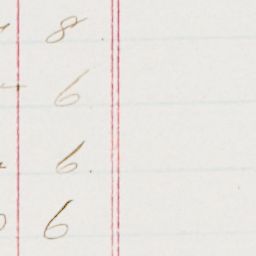 8
6
6
6